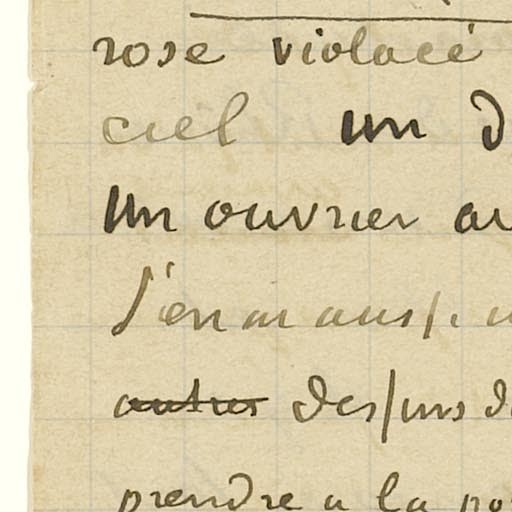 rose violacé
ciel un d
un ouvrier av
J'en ai aussi u
autres dessins d
prendre a la po